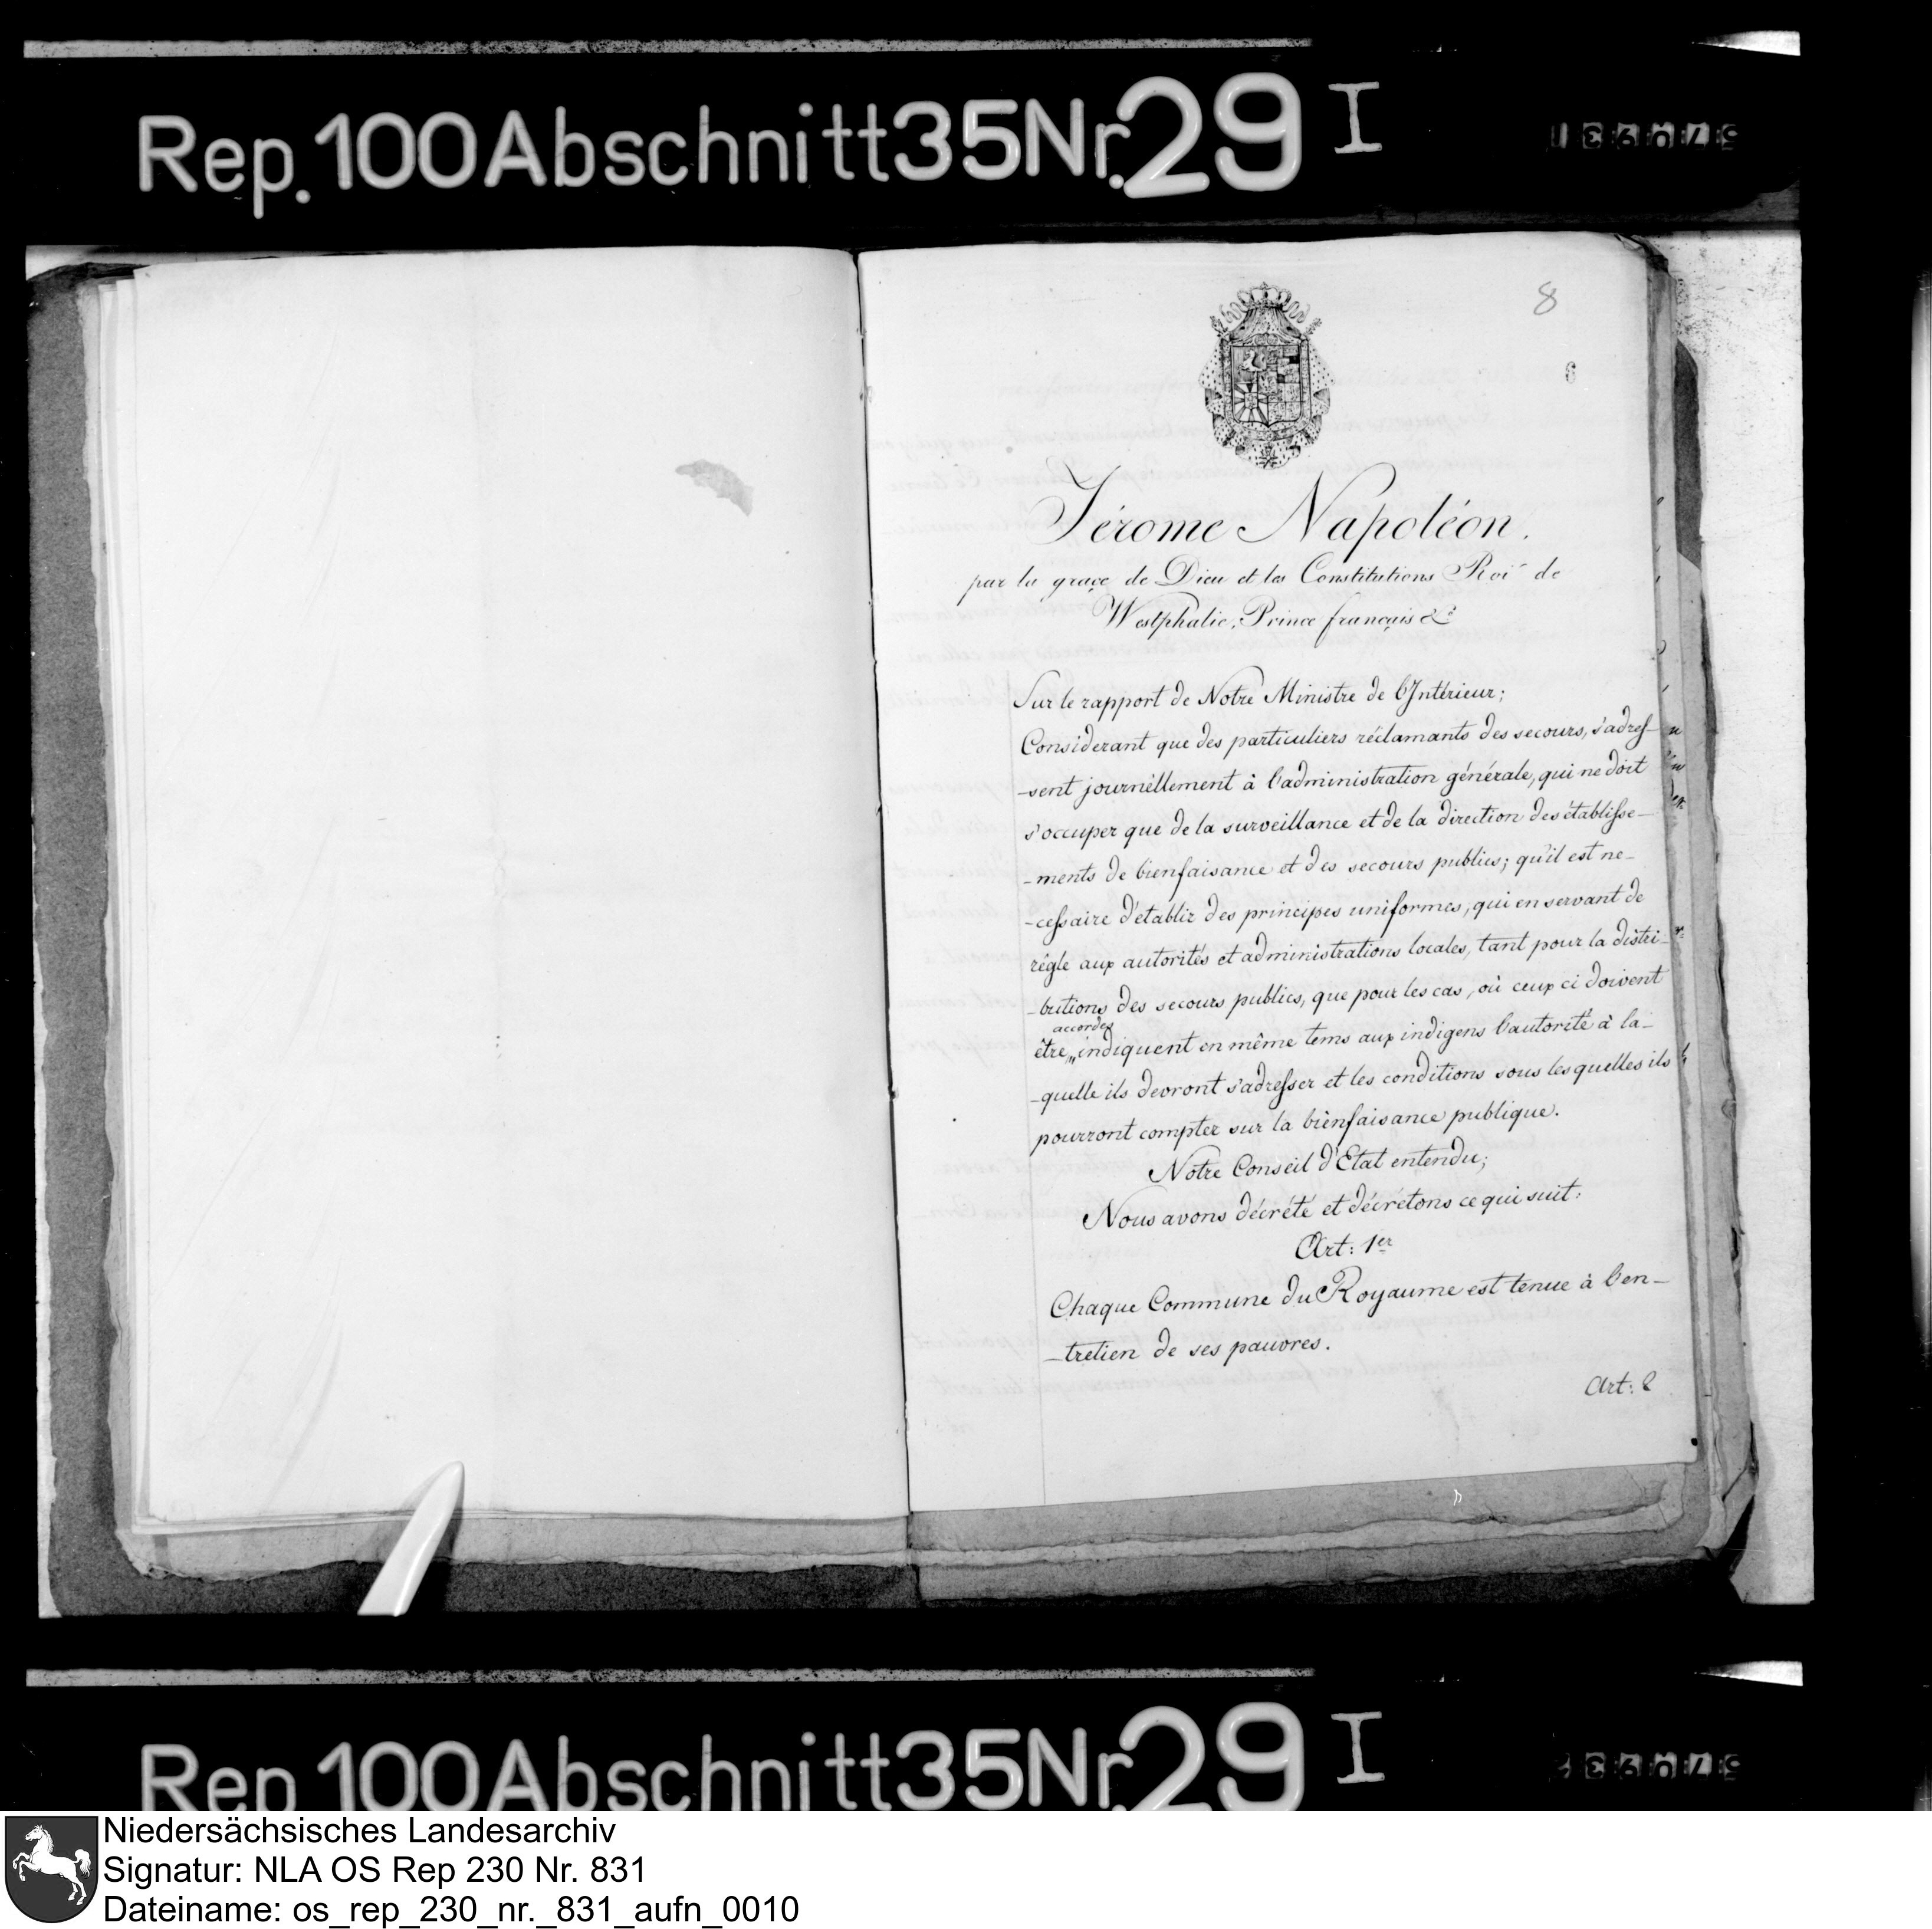 Rep. 100 Abschnitt 35 Nr. 29 I
8
6
Jérome Napoléon.
par la grace de Dieu et les Constitutions Roi de
Westphalie, Prince français &c
Sur le rapport de Notre Ministre de l'Intérieur;
Considerant que des particuliers réclamants des secours, s'adres-
-sent journéllement à l'administration générale, qui ne doit
s'occuper que de la surveillance et de la direction des établisse-
-ments de bienfaisance et des secours publics; qu'il est ne-
-cessaire d'établir des principes uniformes, qui en servant de
régle aux autorités et administrations locales, tant pour la distri-
-butions des secours publics, que pour les cas, où ceux ci doivent
accordés
être „ indiquent en même tems aux indigens l'autorité à la-
-quelle ils devront s'adresser et les conditions sous lesquelles ils
pourront compter sur la bienfaisance publique.
Notre Conseil d'Etat entendu;
Nous avons décrété et décrétons ce qui suit:
Art: 1er
Chaque Commune du Royaume est tenue à l'en-
-tretien de ses pauvres.
Art: 2
Rep 100 Abschnitt 35 Nr. 29 I
Niedersächsisches Landesarchiv
Signatur: NLA OS Rep 230 Nr. 831
Dateiname: os_rep_230_nr._831_aufn_0010